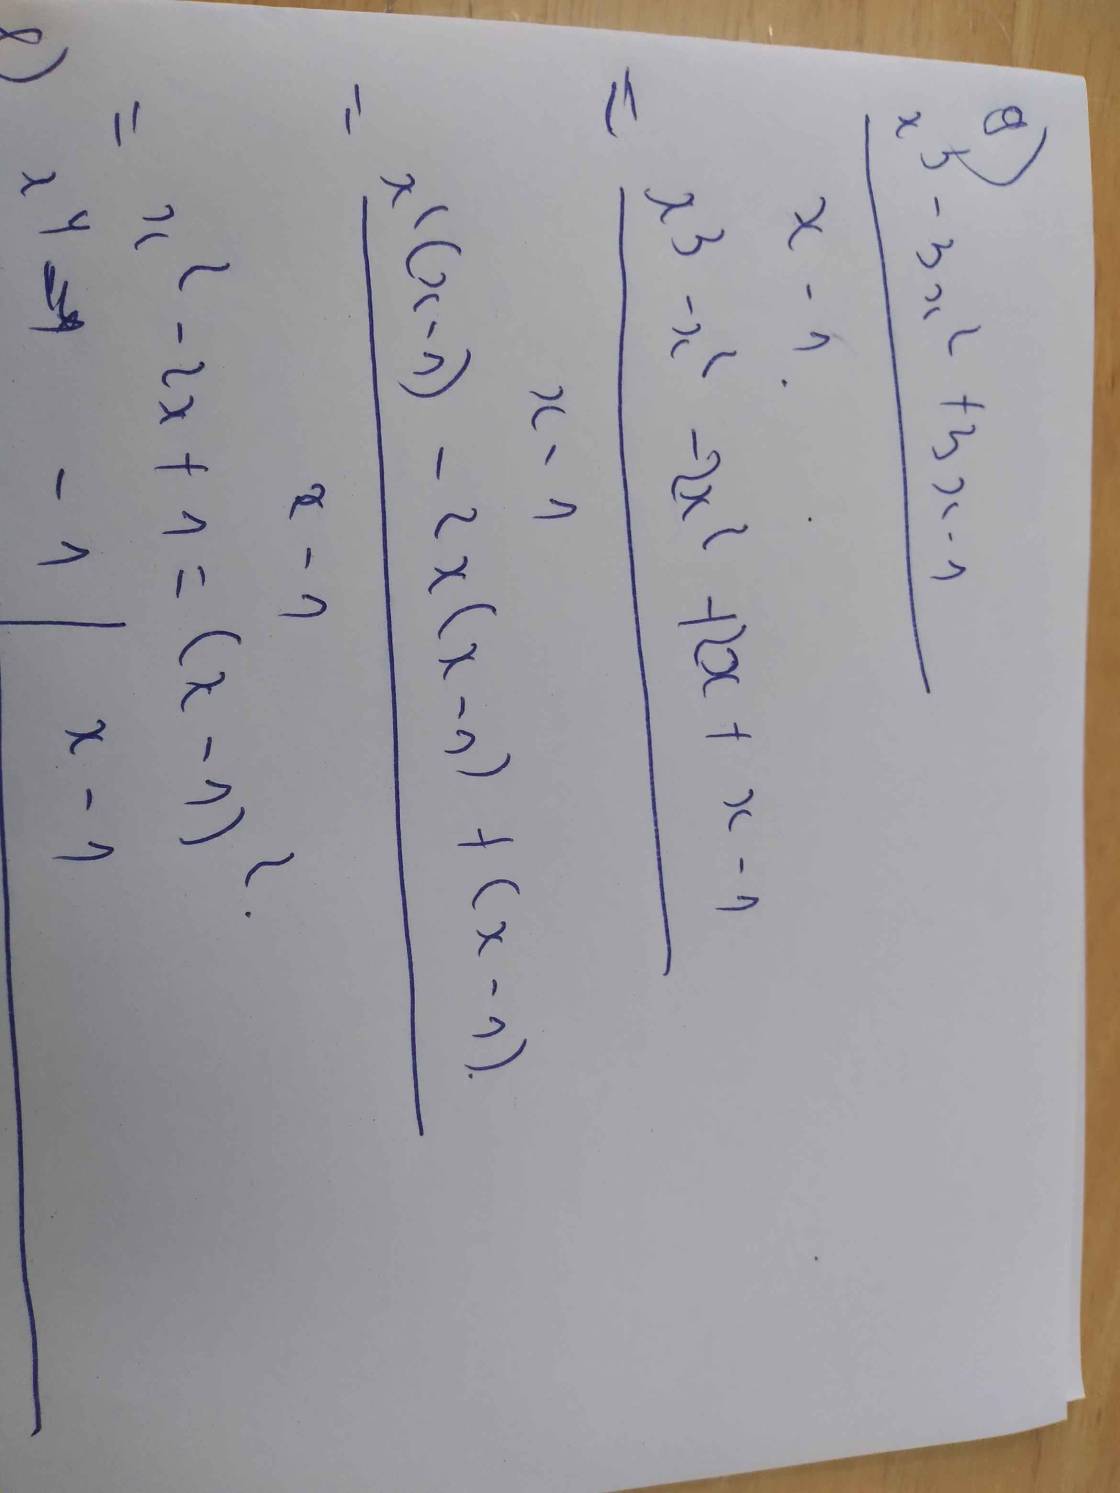 a)
x³ - 3x² + 3x - 1
x - 1.
= x³ - x² - 2x² + 2x + x - 1
x - 1
= x²(x - 1) - 2x(x - 1) + (x - 1).
x - 1
= x² - 2x + 1 = (x - 1)².
x⁴ - 1 | x - 1